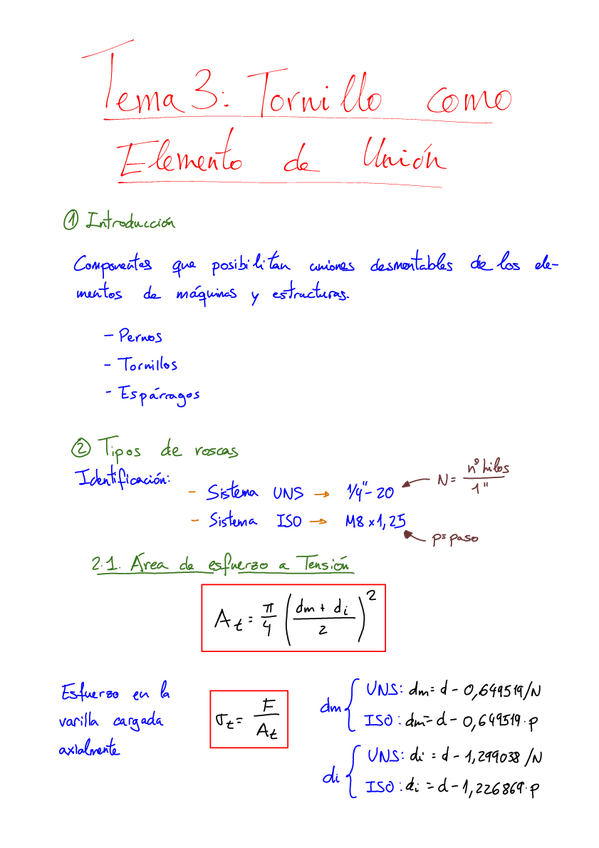 Tema 3: Tornillo como
Elemento de Unión
① Introducción
Componentes que posibilitan uniones desmontables de los ele-
mentos de máquinas y estructuras.
- Pernos
- Tornillos
- Espárragos
② Tipos de roscas
Identificación:
- Sistema UNS → 1/4"-20 ← N = nº hilos / 1"
- Sistema ISO → M8 x 1,25 ← p = paso
2.1. Área de esfuerzo a Tensión
At = π/4 ((dm + di)/2)²
Esfuerzo en la
varilla cargada
axialmente
σt = F/At
dm { UNS: dm = d - 0,649519/N
ISO: dm = d - 0,649519·p
di { UNS: di = d - 1,299038/N
ISO: di = d - 1,226869·p